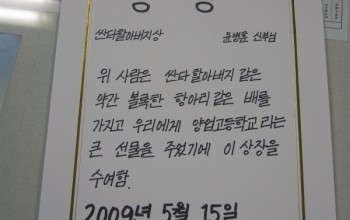 싼타할아버지상 윤병훈 신부님
위 사람은 싼타할아버지 같은
약간 볼록한 항아리 같은 배를
가지고 우리에게 양업고등학교라는
큰 선물을 주었기에 이 상장을
수여함.
2009년 5월 15일